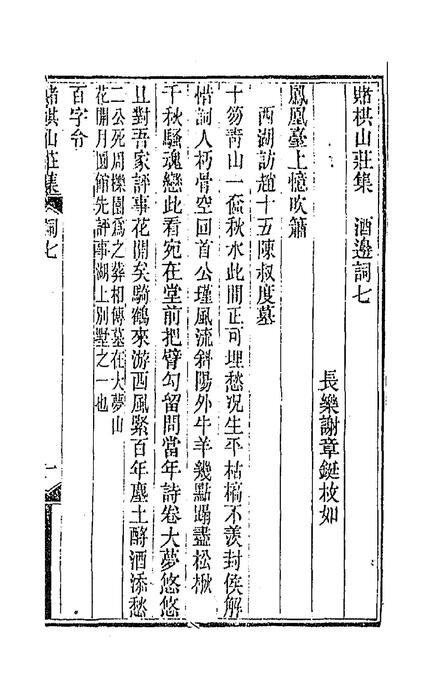 賭棋山莊集　酒邊詞七
長樂謝章鋌枚如
鳳凰臺上憶吹簫
西湖訪趙十五陳叔度墓
十笏靑山一奩秋水此間正可埋愁況生平枯槁不羨封侯解
惜詞人朽骨空回首公瑾風流斜陽外牛羊幾點蹋盡松楸
千秋騷魂戀此看宛在堂前把臂勾留問當年詩卷大夢悠悠
且對吾家評事花開矣騎鶴來游西風緊百年塵土酹酒添愁
二公死周櫟園爲之葬相傳墓在大夢山
花開月圓館先評事湖上別墅之一也
百字令
賭棋山莊集
詞七
一